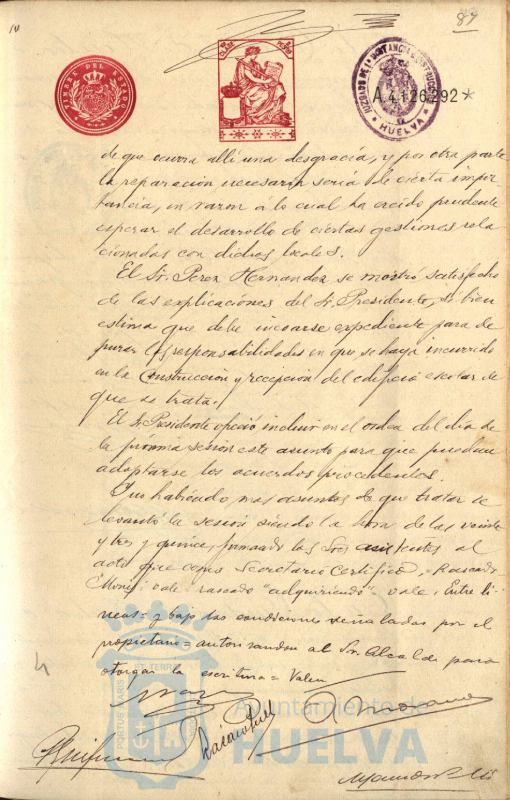 10
87
TIMBRE DEL ESTADO
JUZGADO DE 1ª INSTANCIA E INSTRUCCION
HUELVA
A.4.126.292*
de que ocurra alli una desgracia, y por otra parte
la reparacion necesaria seria de cierta impor-
tancia, en razon á lo cual ha creido prudente
esperar el desarrollo de ciertas gestiones rela
cionadas con dichos locales.
El Sr. Perez Hernandez se mostró satisfecho
de las explicaciones del Sr. Presidente, si bien
estima que debe incoarse expediente para de
purar las responsabilidades en que se haya incurrido
en la construccion y recepcion del edificio escolar de
que se trata.
El Sr. Presidente ofreció incluir en el orden del dia de
la próxima sesion este asunto para que puedan
adoptarse los acuerdos procedentes.
Y no habiendo mas asuntos de que tratar se
levantó la sesion siendo la hora de las veinte
y tres y quince, firmando los Sres asistentes al
acto que como Secretario certifico. = Raspado
vale = raspado "adquiriendo" vale, Entre li-
neas = y bajo las condiciones señaladas por el
propietario = autorizando al Sr. Alcalde para
otorgar la escritura = Valen
4
Ayuntamiento de
HUELVA
PORTUS MARIS ET TERRÆ CUSTODIA